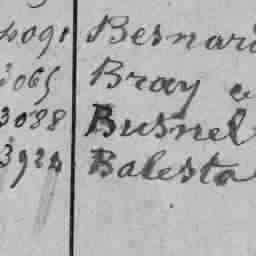 4091 Besnard
3065 Bray e
3088 Busnel
3924 Balesta